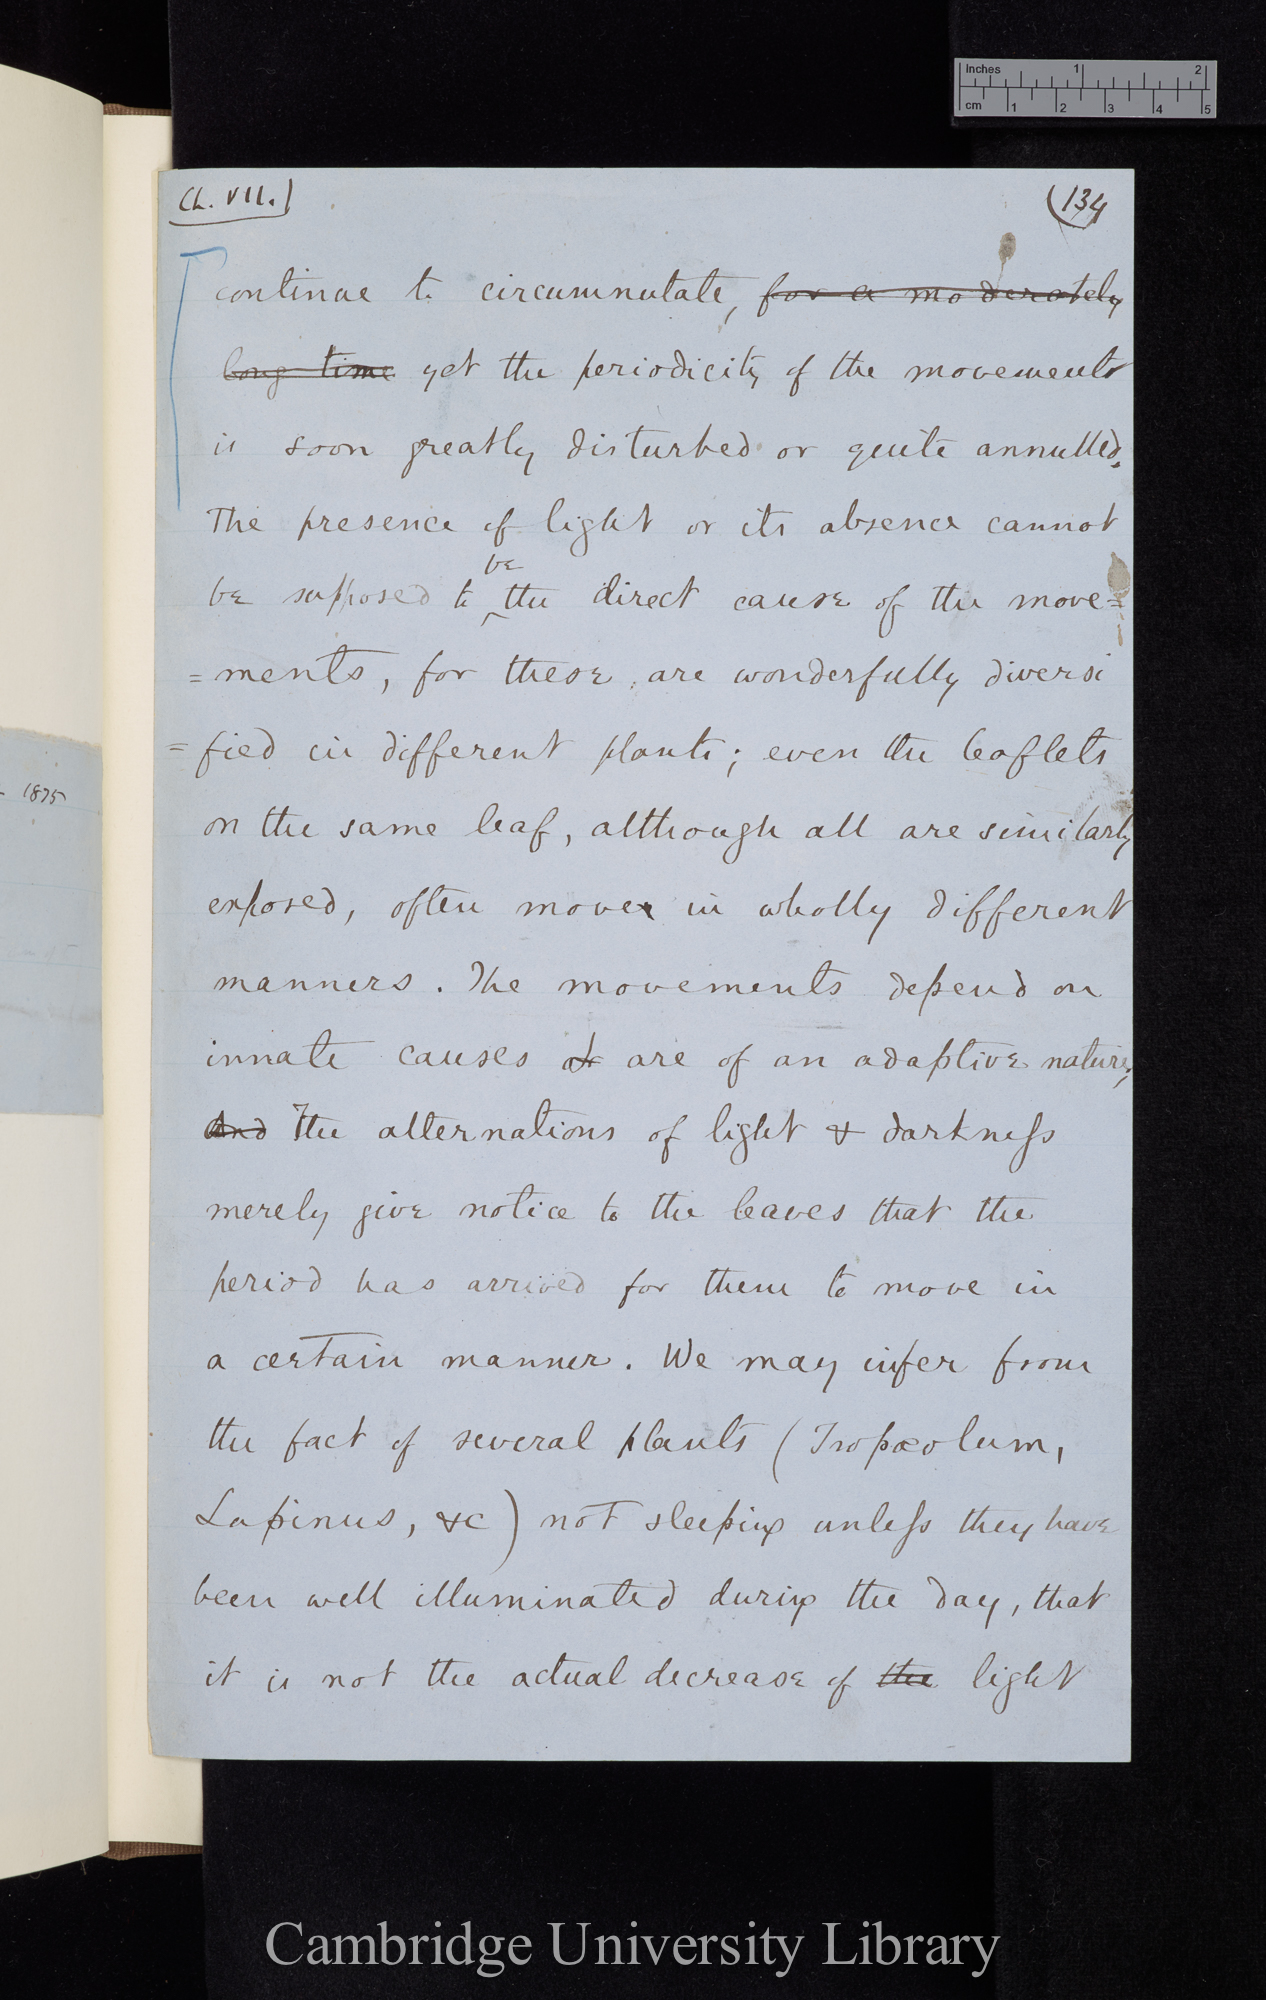 Inches 1 2
cm 1 2 3 4 5
Ch. VII.)
(134
continue to circumnutate, for a moderately
long time yet the periodicity of the movements
is soon greatly disturbed or quite annulled.
The presence of light or its absence cannot
be supposed to be the direct cause of the move=
=ments, for these are wonderfully diversi
=fied in different plants; even the leaflets
1875
on the same leaf, although all are similarly
exposed, often move in wholly different
manners. The movements depend on
innate causes & are of an adaptive nature,
And The alternations of light & darkness
merely give notice to the leaves that the
period has arrived for them to move in
a certain manner. We may infer from
the fact of several plants (Tropæolum,
Lupinus, &c) not sleeping unless they have
been well illuminated during the day, that
it is not the actual decrease of the light
Cambridge University Library